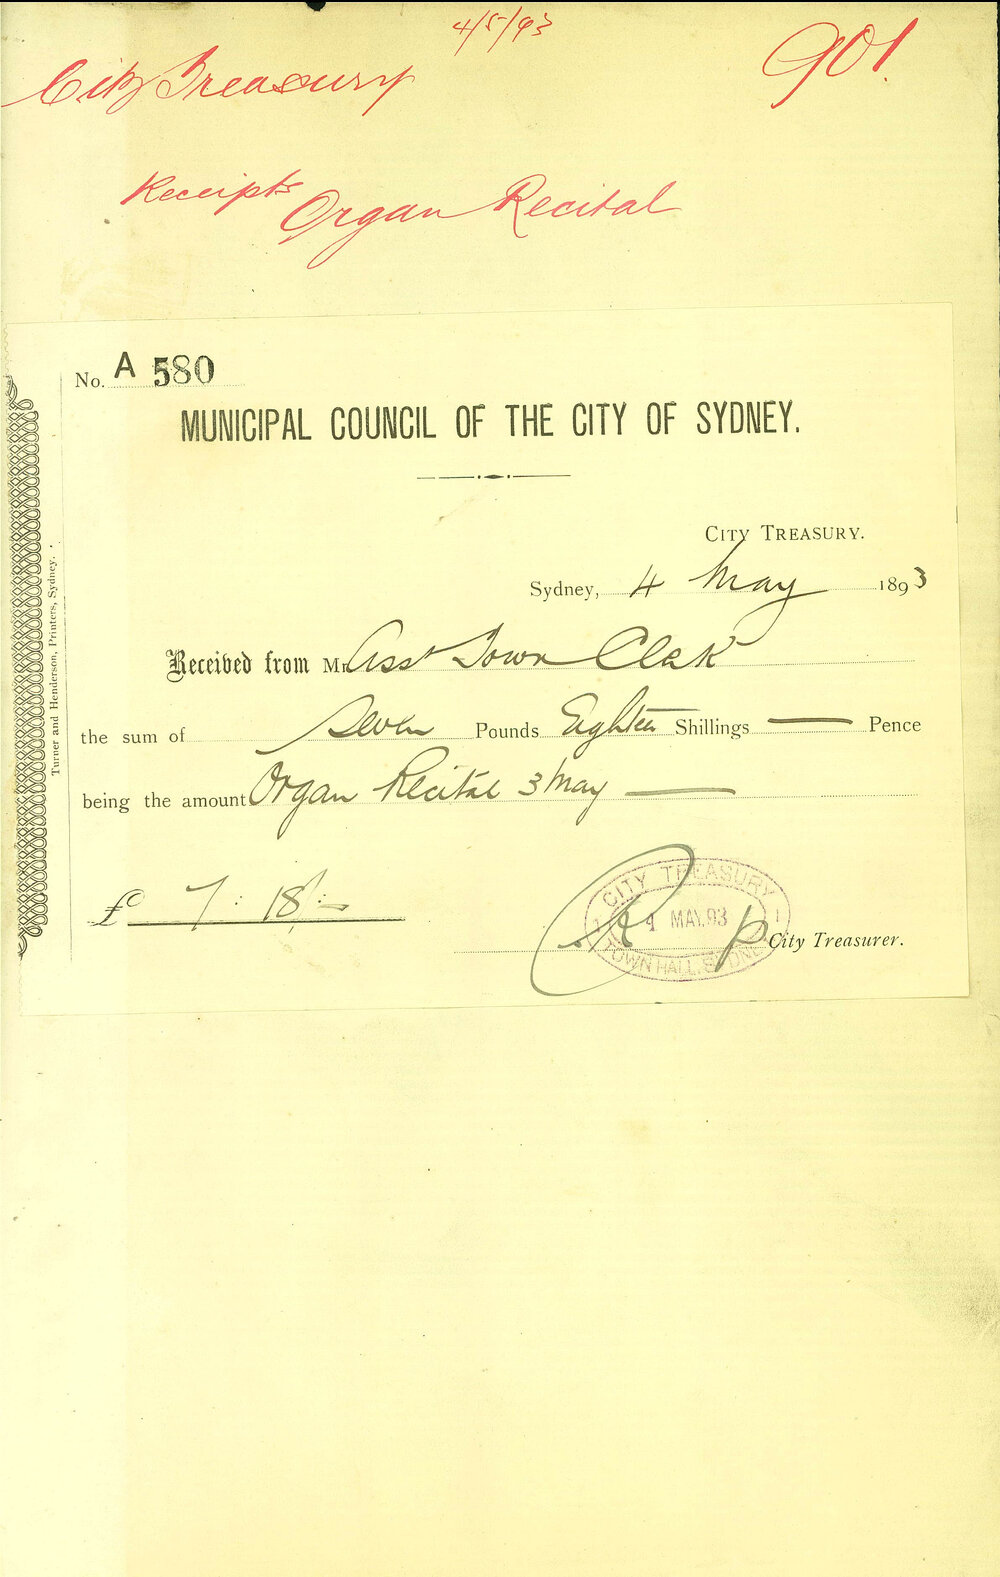 4/5/93
901.
City Treasury
Receipts Organ Recital
No. A 580
MUNICIPAL COUNCIL OF THE CITY OF SYDNEY.
CITY TREASURY.
Sydney, 4 May 1893
Received from Mr Asst Town Clerk
the sum of Seven Pounds Eighteen Shillings — Pence
being the amount Organ Recital 3 May —
£ 7 : 18 : -
City Treasurer.
CITY TREASURY
4 MAY.93
TOWN HALL, SYDNEY
Turner and Henderson, Printers, Sydney.